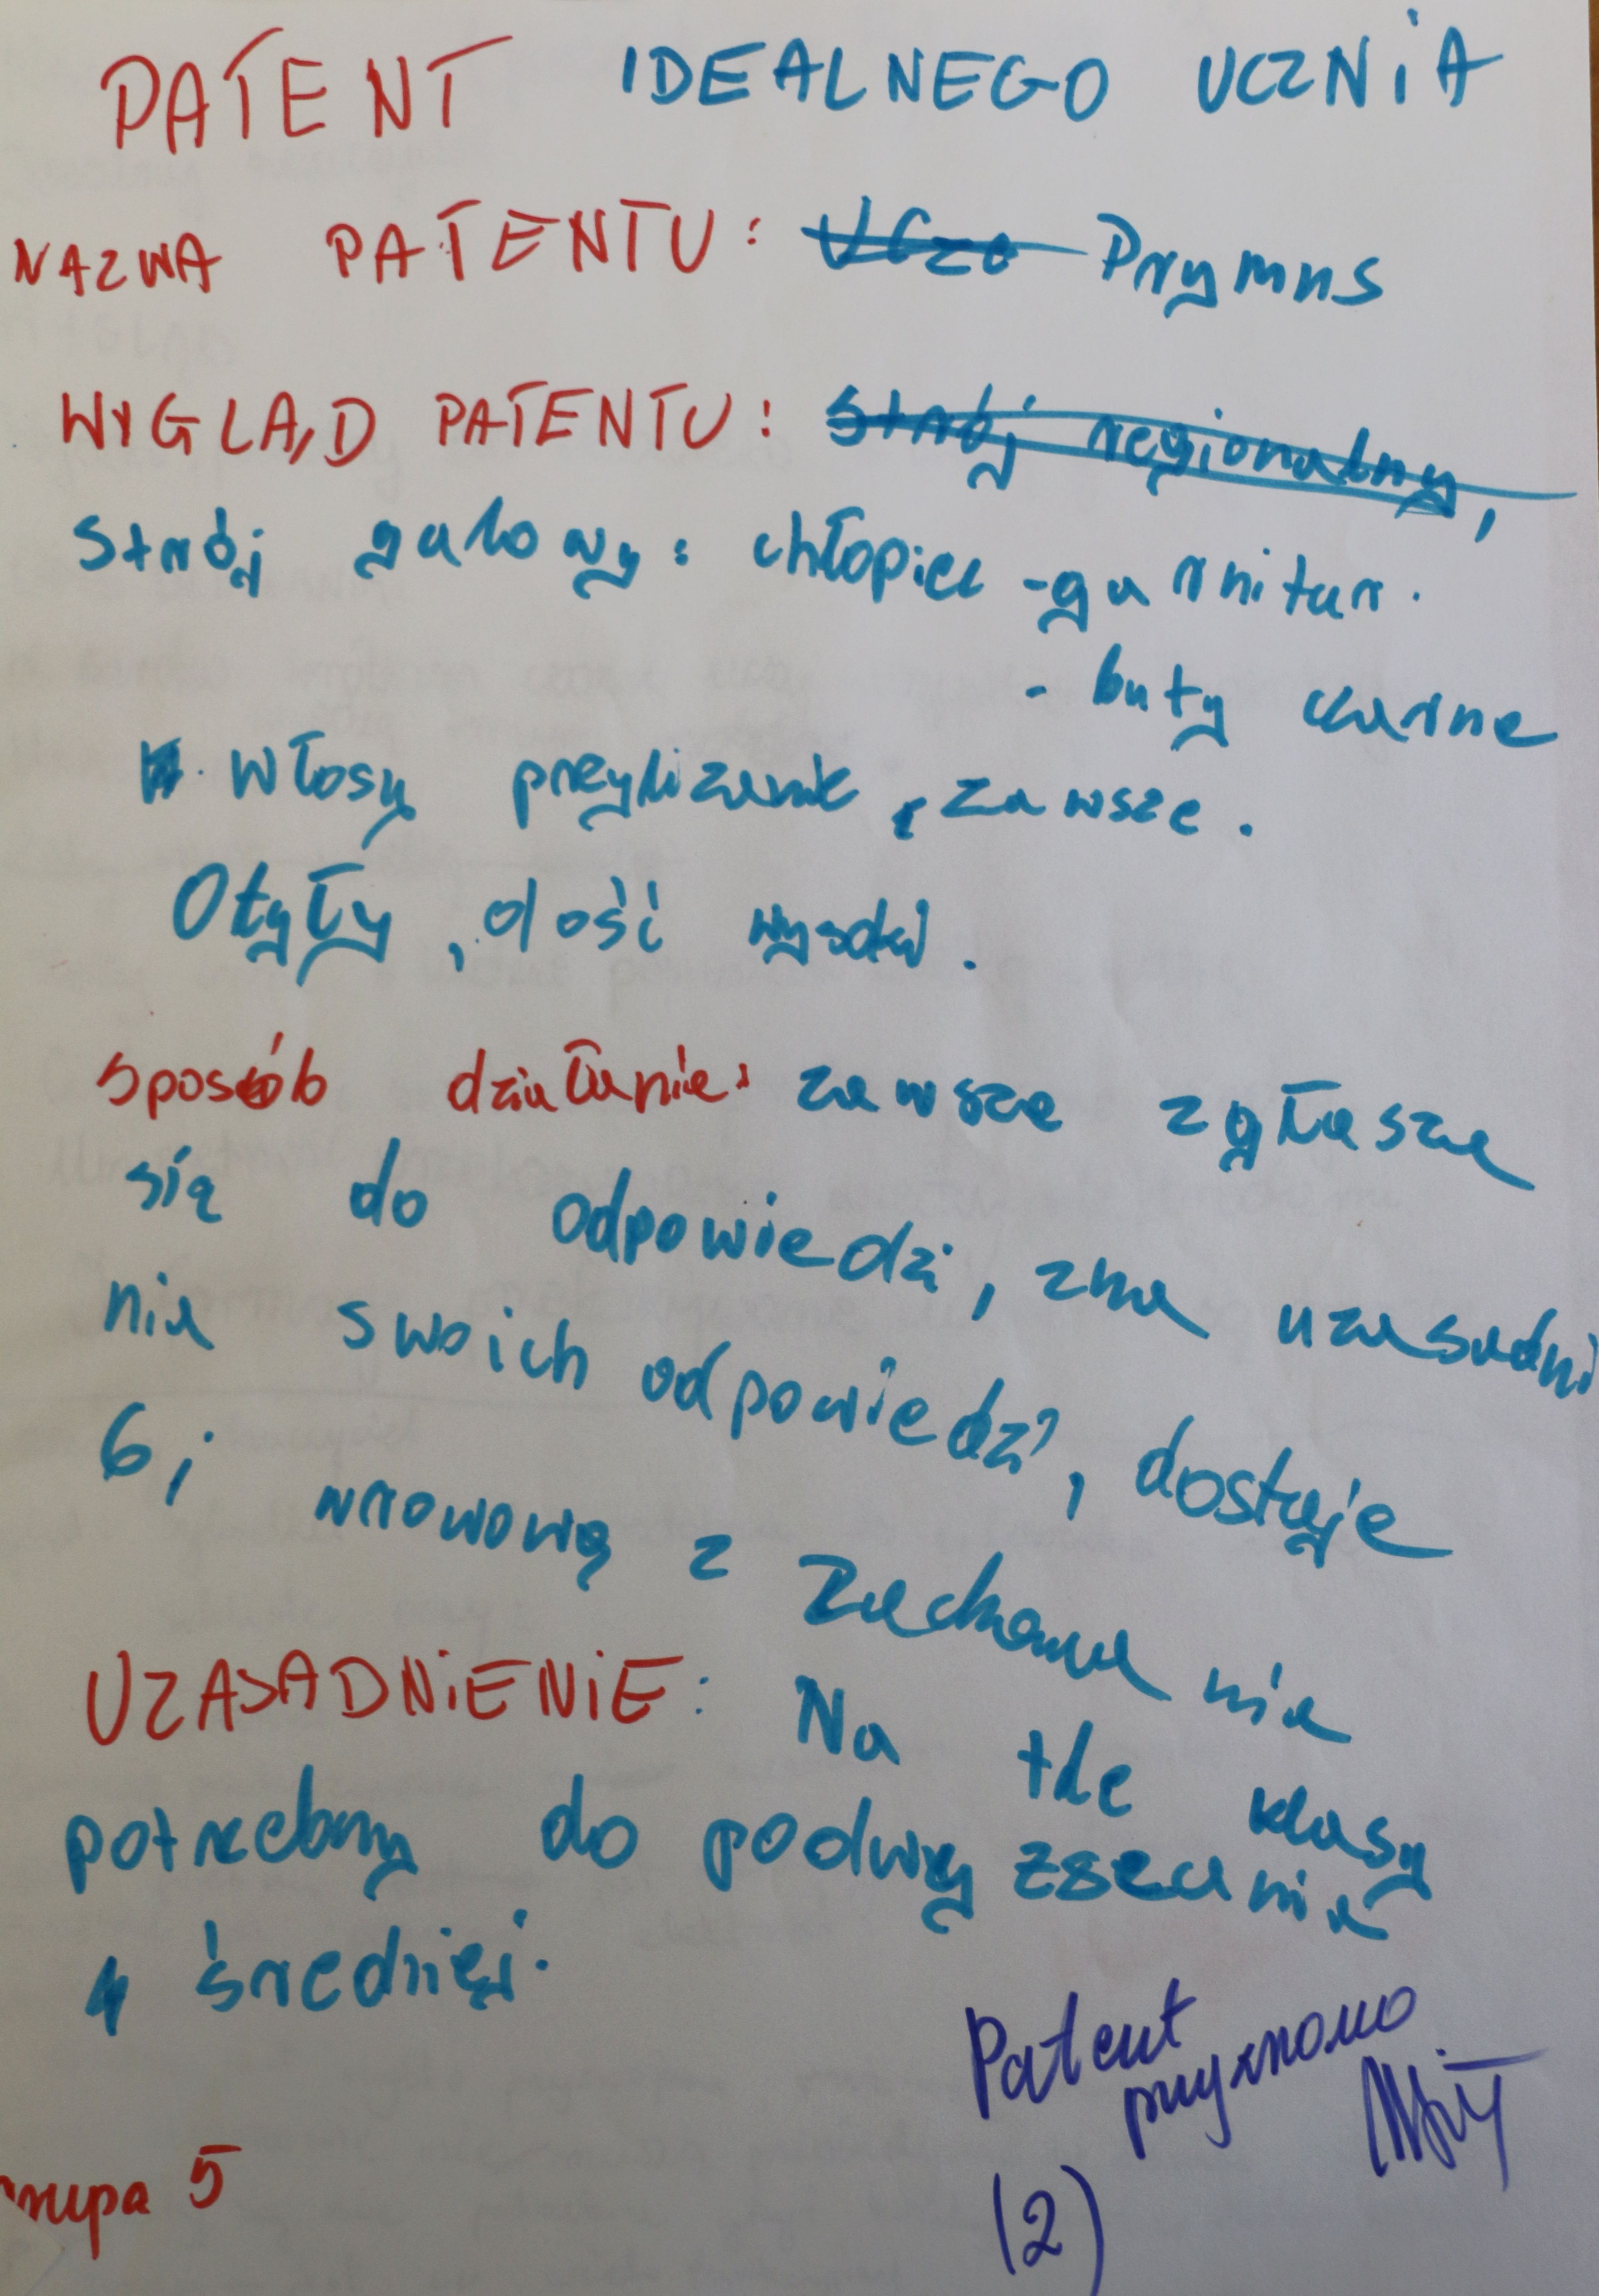 PATENT IDEALNEGO UCZNiA
NAZWA PATENTU: Uczo Prymus
WYGLĄD PATENTU: Strój regionalny,
Strój galowy: chłopiec - garnitur.
- buty czarne
Włosy przylizanie, zawsze.
Otyły, dość wysoki.
sposób działanie: zawsze zgłasza
się do odpowiedzi, zna uzasadni
nia swoich odpowiedzi, dostaje
6, wzorową z Zachowania
UZASADNiENiE: Na tle klasy
potrzebny do podwyzszenia
średniej.
Patent
przyznano
grupa 5
(2)